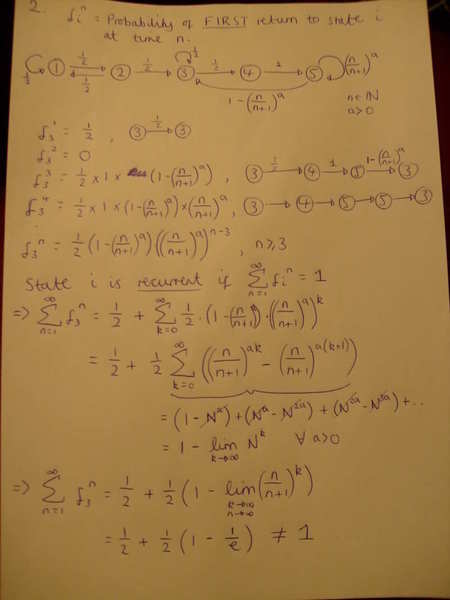 2. fᵢⁿ = Probability of FIRST return to state i
at time n.
½ ½ ½ ½ ½ 1 (n/(n+1))ᵃ
① ② ③ ④ ⑤
½ 1 − (n/(n+1))ᵃ n ∈ ℕ
a>0
f₃¹ = ½ , ③ —½→ ③
f₃² = 0
f₃³ = ½ × 1 × (1−(n/(n+1))ᵃ) , ③ —½→ ④ —1→ ⑤ —1−(n/(n+1))ᵃ→ ③
f₃⁴ = ½ × 1 × (1−(n/(n+1))ᵃ) × (n/(n+1))ᵃ , ③ → ④ → ⑤ → ⑤ → ③
f₃ⁿ = ½ (1−(n/(n+1))ᵃ) ((n/(n+1))ᵃ)ⁿ⁻³ , n ≥ 3
State i is recurrent if ∑_{n=1}^{∞} fᵢⁿ = 1
=> ∑_{n=1}^{∞} f₃ⁿ = ½ + ∑_{k=0}^{∞} ½ · (1−(n/(n+1))ᵃ) · ((n/(n+1))ᵃ)ᵏ
= ½ + ½ ∑_{k=0}^{∞} ((n/(n+1))^{ak} − (n/(n+1))^{a(k+1)})
= (1−Nᵃ) + (Nᵃ−N²ᵃ) + (N²ᵃ−N³ᵃ) + ..
= 1 − lim_{k→∞} Nᵏ ∀ a>0
=> ∑_{n=1}^{∞} f₃ⁿ = ½ + ½ (1 − lim_{k→∞ n→∞} (n/(n+1))ᵏ)
= ½ + ½ (1 − 1/e) ≠ 1